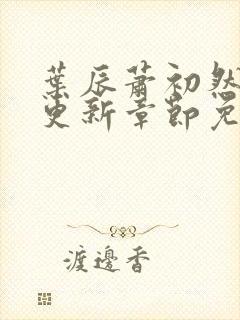 葉辰蕭初然
更新章節免
渡邊香